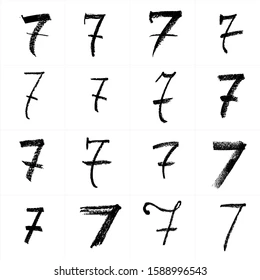 7 7 7 7
7 7 7 7
7 7 7 7
7 7 7 7
shutterstock.com · 1588996543